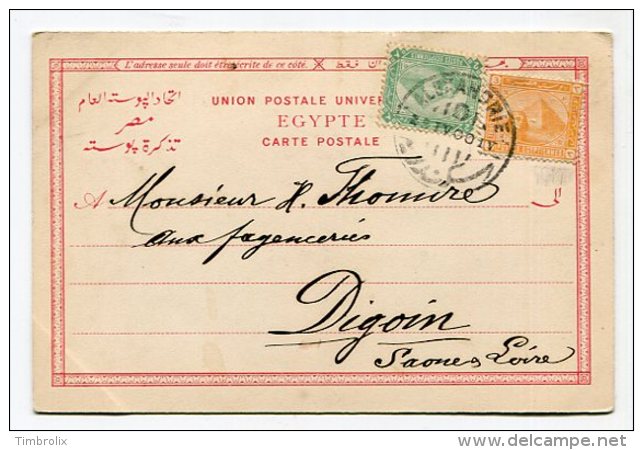 L'adresse seule doit être écrite de ce côté.
فقط
اتحاد البوسته العام
مصر
تذكرة بوسته
UNION POSTALE UNIVER
EGYPTE
CARTE POSTALE
ALEXANDRIE
A Monsieur H. Thomire
الى
aux fayenceries
Digoin
Saone & Loire
Timbrolix
delcampe.net